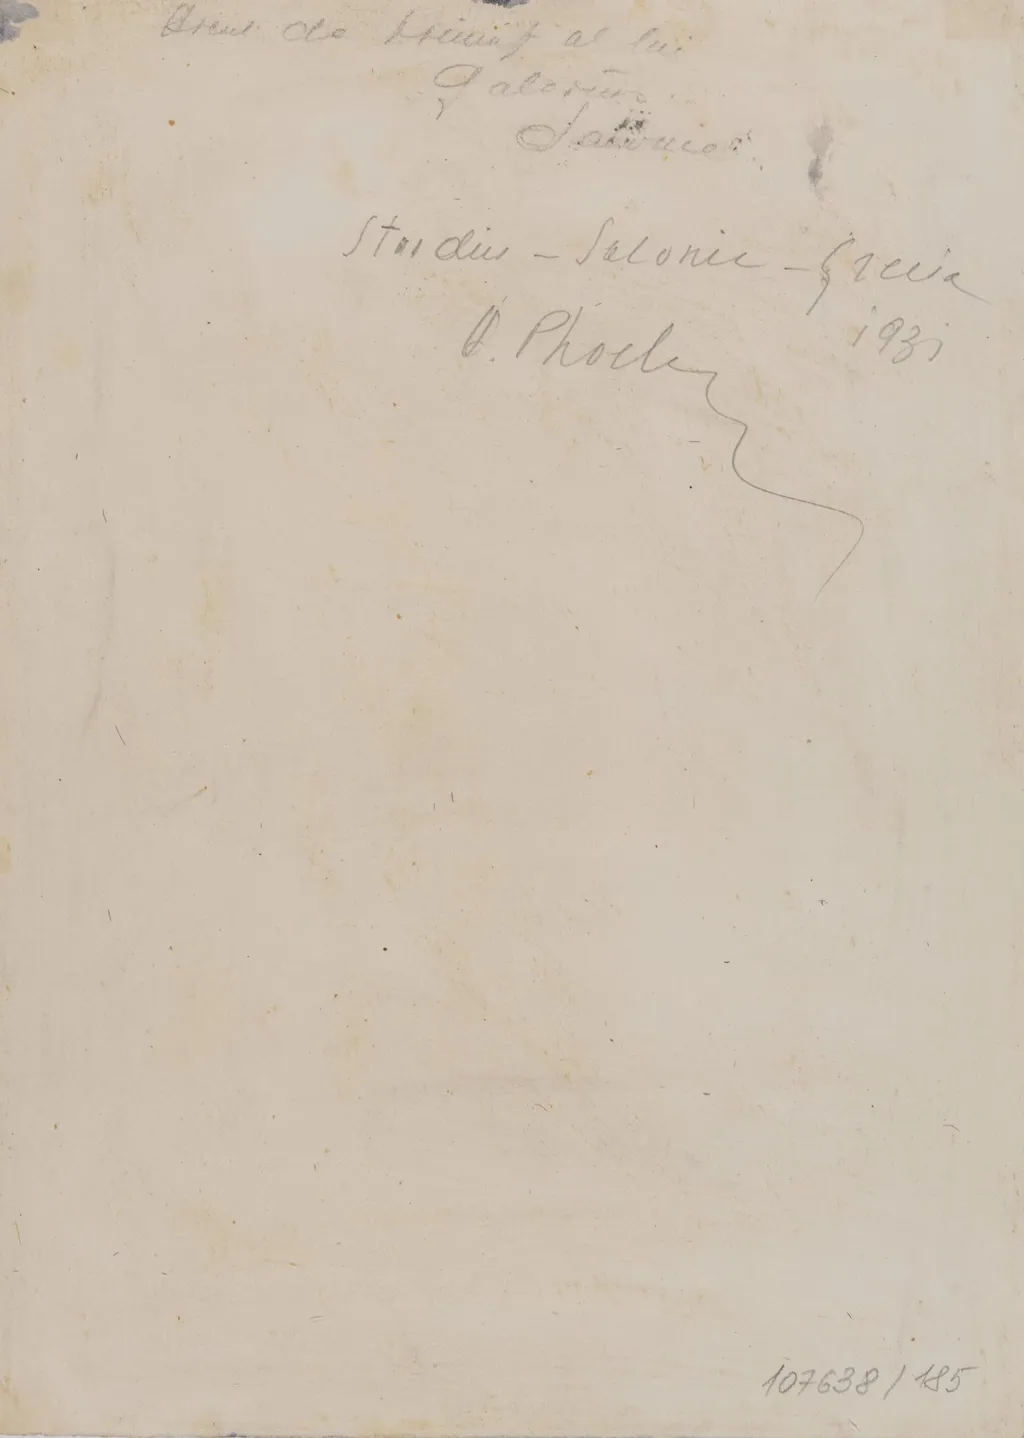 Arcul de triumf al lui
Galerius
Salonic
Studiu – Salonic – Grecia
1931
A. Phoeb
107638 / 185